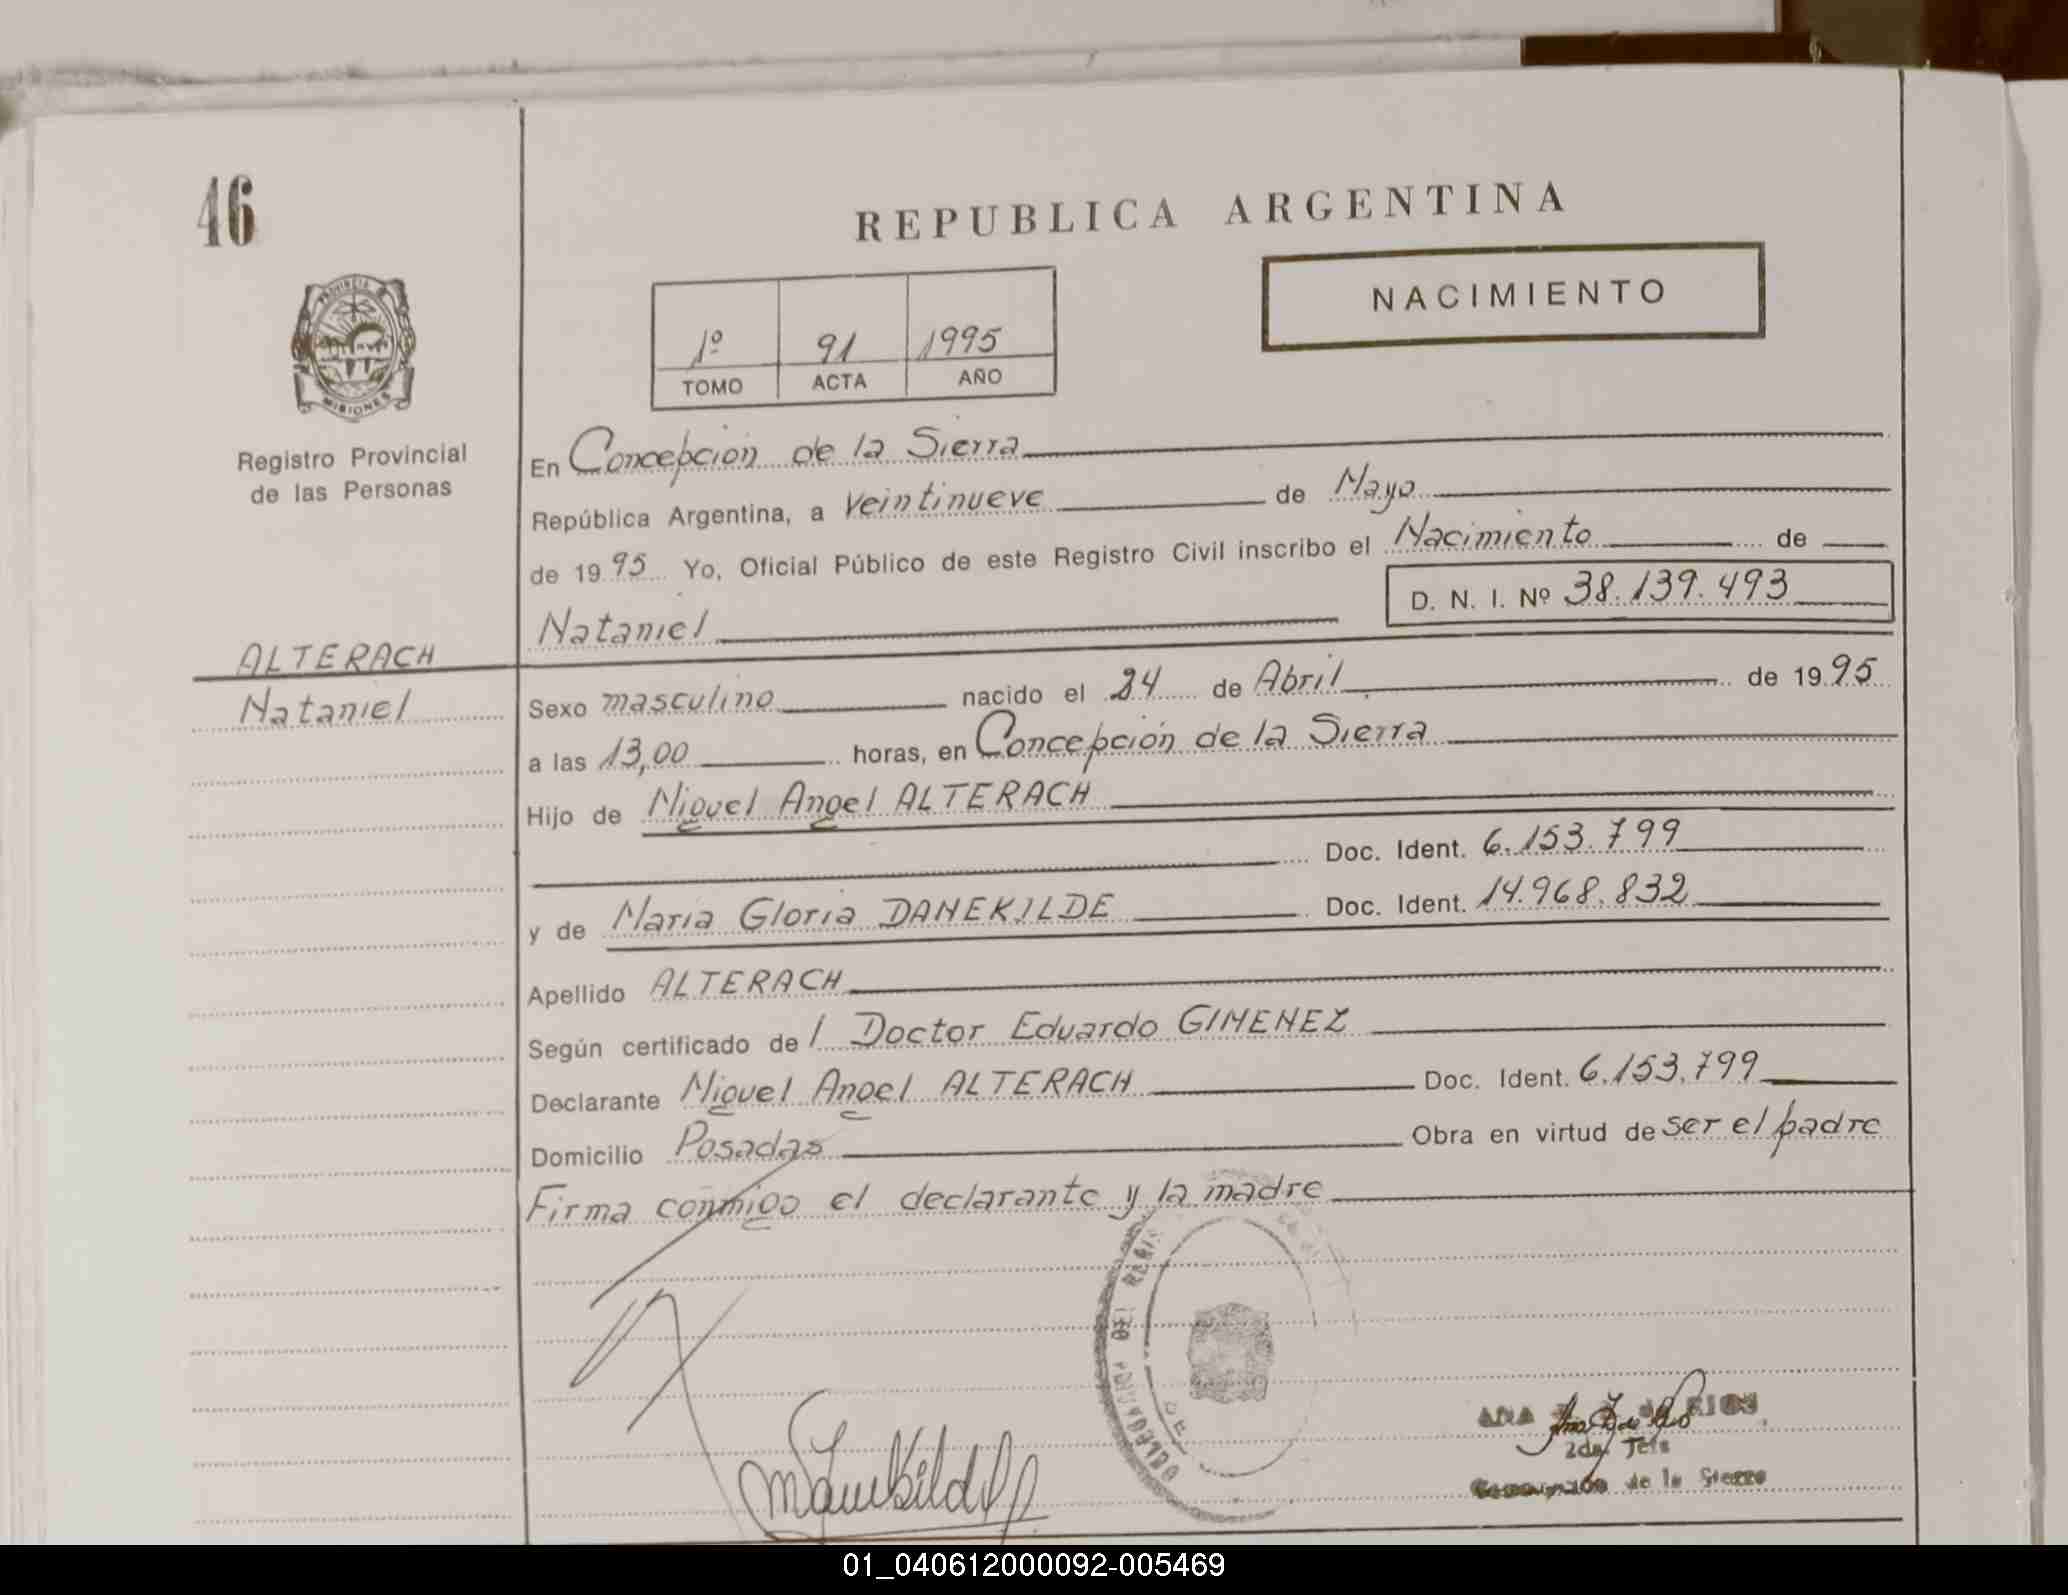 46
REPUBLICA ARGENTINA
NACIMIENTO
PROVINCIA DE
MISIONES
1º 91 1995
TOMO ACTA AÑO
Registro Provincial
de las Personas
En Concepción de la Sierra
República Argentina, a Veintinueve de Mayo
de 1995 Yo, Oficial Público de este Registro Civil inscribo el Nacimiento de
D. N. I. Nº 38.139.493
Nataniel
ALTERACH
Nataniel
Sexo masculino nacido el 24 de Abril de 1995
a las 13,00 horas, en Concepción de la Sierra
Hijo de Miguel Angel ALTERACH
Doc. Ident. 6.153.799
y de Maria Gloria DANEKILDE Doc. Ident. 14.968.832
Apellido ALTERACH
Según certificado del Doctor Eduardo GIMENEZ
Declarante Miguel Angel ALTERACH Doc. Ident. 6.153.799
Domicilio Posadas Obra en virtud de ser el padre
Firma conmigo el declarante y la madre
DEL REGIS
ANA RIOS
2da. Jefe
de la Sierra
01_040612000092-005469